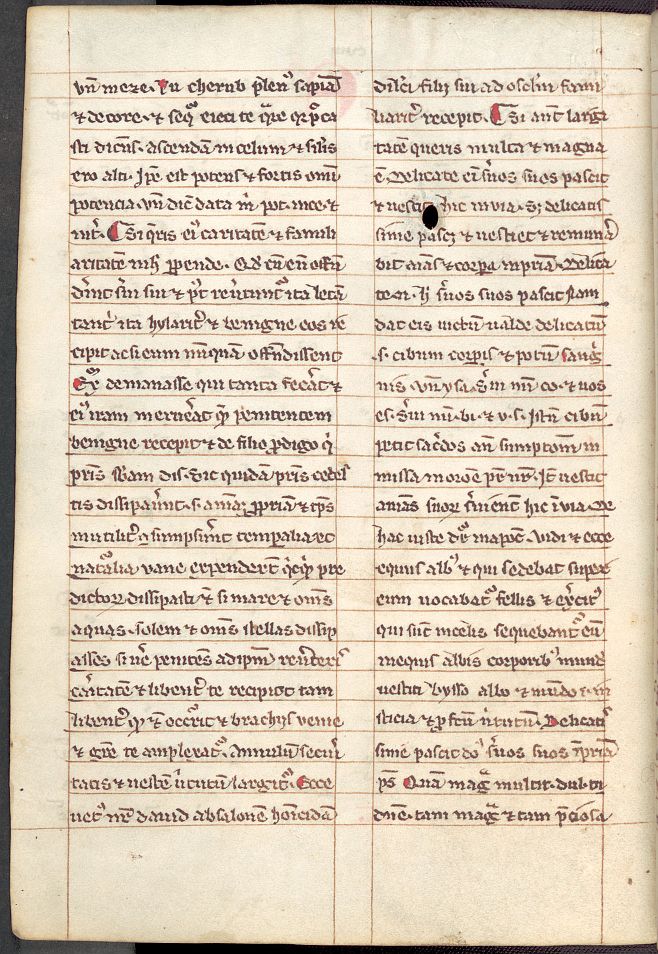 vn̄ meze. Tu cherub plen' sapiā
⁊ decore. ⁊ seqr̄ eieci te q̄re qr p̄ca
sti dicens. ascendam in celum ⁊ silis
ero alti. Ipē est potens ⁊ fortis omī
potencia. vn̄ dic̄ data m̄ pot. in ce. ⁊
int̄. Si q̄ris ei' caritatē ⁊ famili
aritatē
dn̄t sui sui ⁊ pt̄ ita letā
tant̄ ita hylarit̄ ⁊ benigne eos re
cipit ac si eum nūquā offendissent
Ex̄ de manasse qui tanta fecāt ⁊
ei' iram meruēat q̄ penitentem
benigne recepit ⁊ de filio p̄digo q̄
pris s̄bam dis. Sic quidā pris celes
tis dissipaūnt. s. aīaꝫ p̄priā ⁊ tp̄s
inutilit̄ ɔsumpsēnt temporalia ⁊c
nat̄alia vane expenderēt
dictorꝫ dissipasti ē si mare ⁊ om̄s
aquas. solem ⁊ om̄s stellas dissip
asses si ūe penitēs ad ipm̄ reūteris
caritatē ⁊ libent̄ te recipiet tam
libent̄ qd ē occ̄rit ⁊ brachijs venie
⁊ gr̄e te amplexat̄. Annulū secur̄
tatis ⁊ vestē ūtutū largit̄. Ecce
uet' nr̄ dauid absalonē homicidā
filij sui ad osclm fami
liarit̄ recepit. Si aūt larga
tatē queris multa ⁊ magna
ē. Delicate ei s̄uos suos pascit
⁊ uestit hic in via. Sꝫ delicatis
sime pascꝫ ⁊ uestiet ⁊ remunā
bit aīas ⁊ corpa in pr̄ia. Delica
te. n. h s̄uos suos pascit nam
dat eis victū ualde delicatū
.s. cibum corpis ⁊ potū sanḡ
nis. vn̄ ysa. S̄ui mī co. ⁊ uos
es. S̄ui mī. bi. ⁊ v. s. Istū cibū
petit sac̄dos an̄ sumptōm in
missa in orōe pr̄ nr̄. It̄ uestit
aīas suorꝫ s̄uientū hic ī via. De
hac ueste dr̄ in apoc̄. Vidi ⁊ ecce
equus alb' ⁊ qui sedebat super
eum uocabat̄ fellis ⁊ ex̄cit'
qui sūt in celis sequebant̄ eū
in equis albis corporib' mund
uestiti bysso albo ⁊ mūdo
sticia ⁊ p̄fcm̄ ūtutum. Delicatis
sime pascit dō s̄uos suos ī pr̄ia
ps̄ Quā maḡ multit. dul. ti
dne. tam maḡ ⁊ tam p̄ciosa